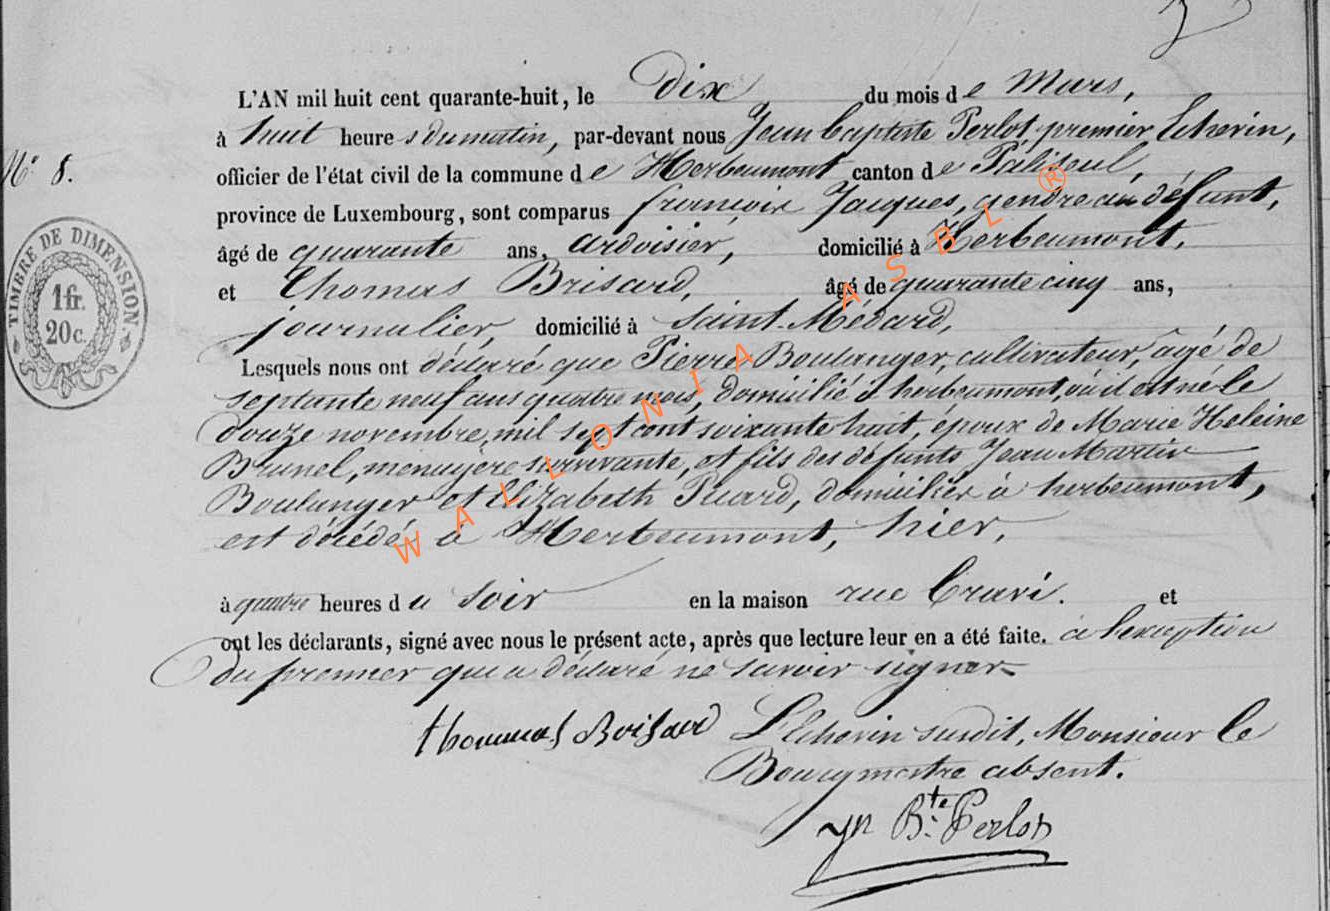 L'AN mil huit cent quarante-huit, le Dix du mois de Mars,
à huit heures du matin, par-devant nous Jean Baptiste Perlot, premier Echevin,
N° 8.
officier de l'état civil de la commune de Herbeumont canton de Paliseul,
province de Luxembourg, sont comparus françois Jacques, gendre au défunt,
âgé de quarante ans, ardoisier, domicilié à Herbeumont,
et Thomas Brisard, âgé de quarante cinq ans,
journalier, domicilié à Saint-Médard,
TIMBRE DE DIMENSION.
1 fr.
20 c.
Lesquels nous ont déclaré que Pierre Boulanger, cultivateur, âgé de
septante neuf ans quatre mois, domicilié à herbeumont, où il est né le
douze novembre mil sept cent soixante huit, époux de Marie Heleine
Brunel, ménagère survivante, et fils des défunts Jean Martin
Boulanger et Elizabeth Picard, domiciliés à herbeumont,
est décédé à Herbeumont, hier,
à quatre heures du soir en la maison rue . et
ont les déclarants, signé avec nous le présent acte, après que lecture leur en a été faite. à l'exception
du premier qui a déclaré ne savoir signer
thommas Brisard L'Echevin susdit, Monsieur le
Bourgmestre absent.
Jn Bte Perlot
WALLONIA ASBL ®